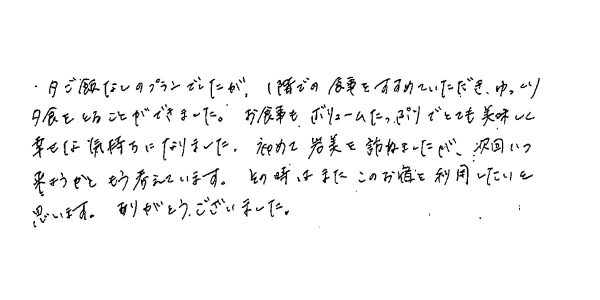 ・夕ご飯なしのプランでしたが、1階での食事をすすめていただき、ゆっくり
夕食をとることができました。お食事も ボリュームたっぷりでとても美味しく
幸せな気持ちになりました。初めて岩美を訪ねましたが、次回いつ
来ようかと もう考えています。その時はまたこのお宿を利用したいと
思います。ありがとうございました。